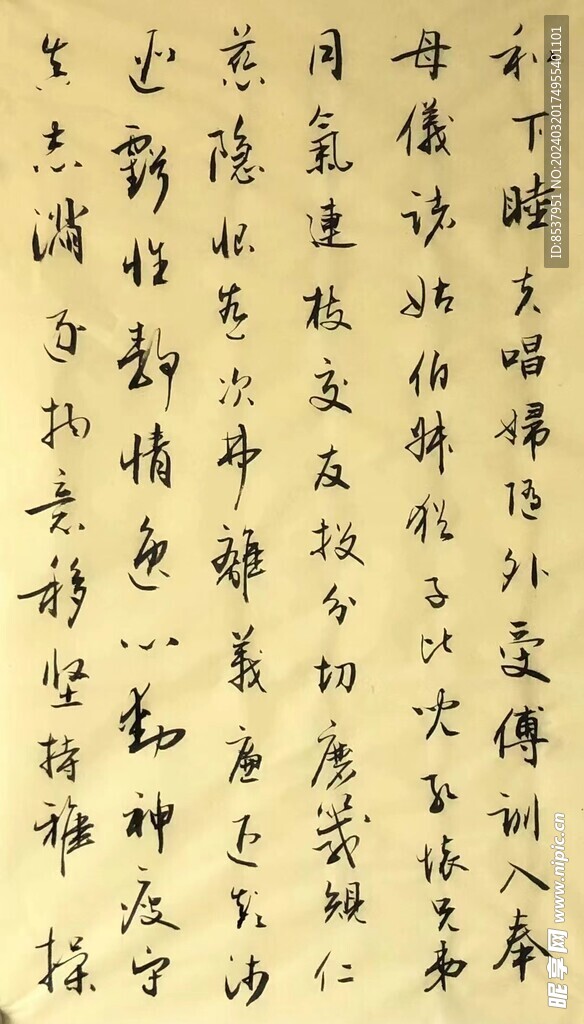 和下睦夫唱婦随外受傅訓入奉
母儀諸姑伯叔猶子比児孔懐兄弟
同氣連枝交友投分切磨箴規仁
慈隐恻造次弗離義廉退顛沛
匪虧性靜情逸心動神疲守
真志滿逐物意移坚持雅操
ID:8537951 NO:20240320174955401101
昵享网 www.nipic.cn